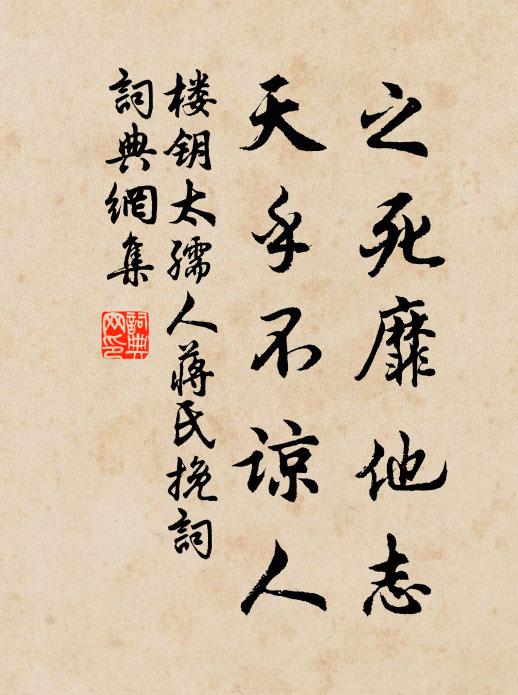 之死靡他志
天乎不谅人
楼钥太孺人蒋氏挽詞
詞典網集
詞典
网印